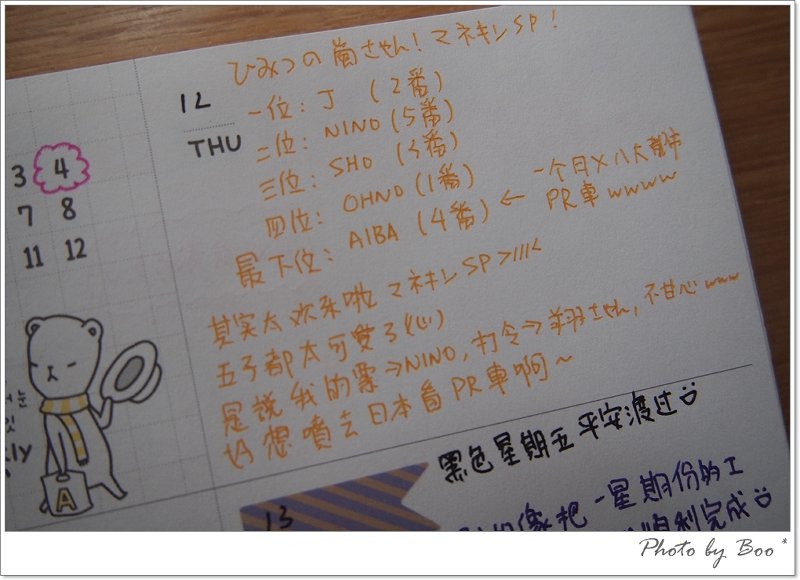 ひみつの嵐さん!マネキンSP!
12
THU
一位:J (2番)
二位:NINO(5番)
三位:SHO (3番)
四位:OHNO(1番)
最下位:AIBA (4番) ← 一个月×八大都市
PR車wwww
其实太欢乐啦 マネキンSP>///<
五子都太可愛了(心)
是説我的票→NINO,打令→翔さん,不甘心www
想噴去日本看PR車啊~
3 4
7 8
11 12
A
黑色星期五平安渡过
13
像把一星期份的工
順利完成
Photo by Boo*